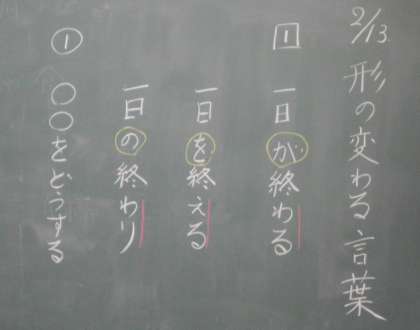 2/13 形の変わる言葉
1 一日が終わる
一日を終える
一日の終わり
1 〇〇をどうする